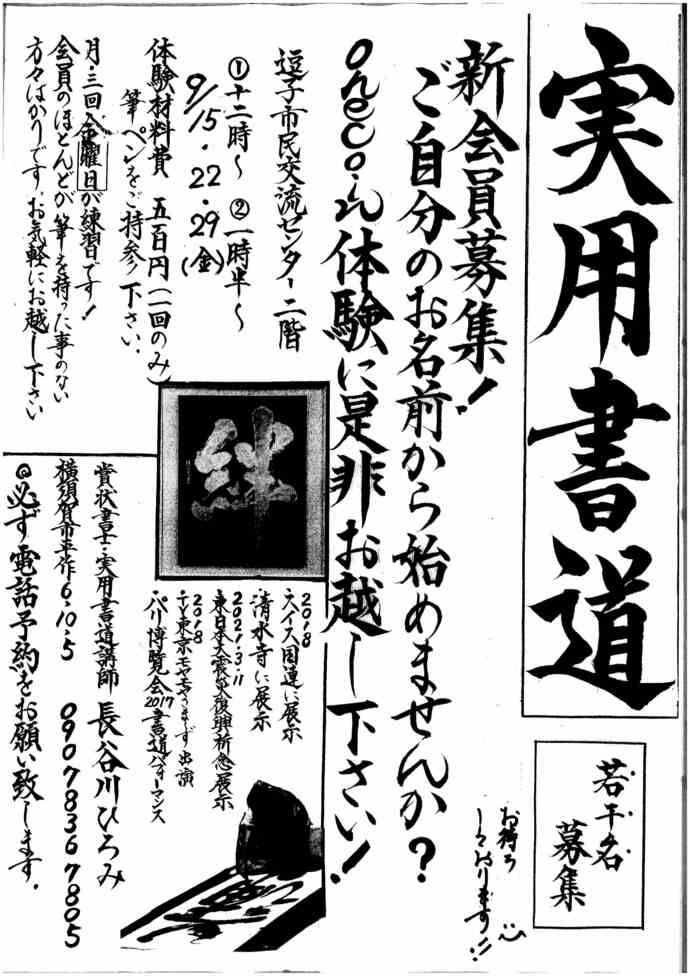 実用書道
若干名
募集
お待ち
しております!!
新会員募集!
ご自分のお名前から始めませんか?
onecoin体験に是非お越し下さい!
逗子市民交流センター二階
①十二時〜 ②一時半〜
9/15.22.29(金)
体験材料費 五百円(一回のみ)
筆ペンをご持参下さい.
月・三回金曜日が練習です!
会員のほとんどが筆を持った事のない
方々ばかりです.お気軽にお越し下さい
絆
2018
スイス国連に展示
清水寺に展示
2021.3.11
東日本大震災復興祈念展示
2018
テレ東京モヤモヤさまぁず出演
パリ博覧会2017書道パフォーマンス
賞状書士・実用書道講師 長谷川ひろみ
横須賀市平作6.10.5 09078367805
◎必ず電話予約をお願い致します.